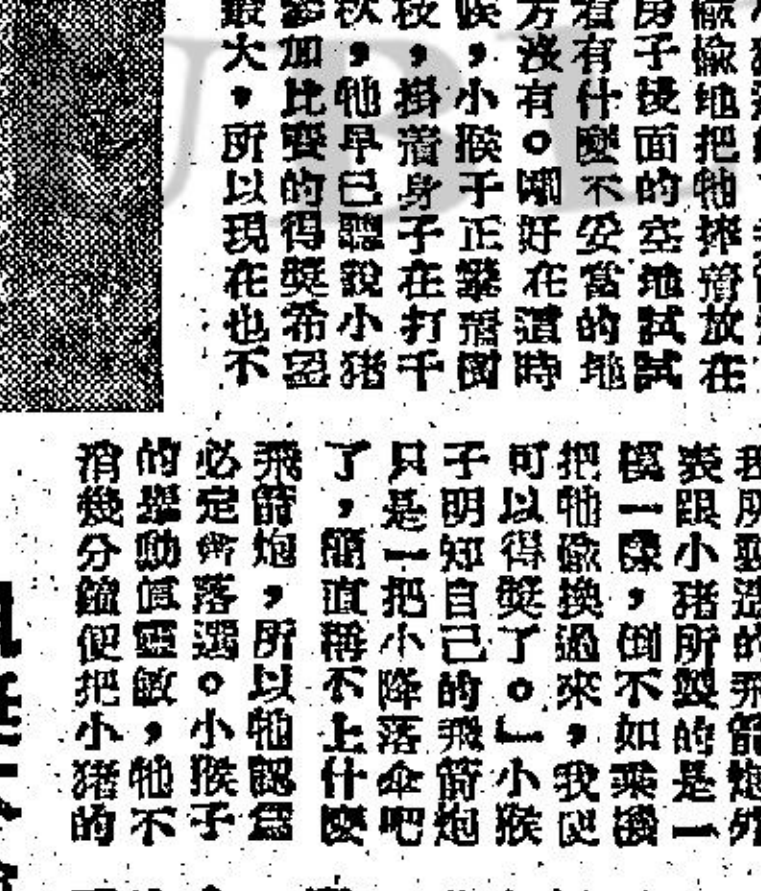 偷偷地把牠捧着放在
房子後面的空地試試
看有什麼不妥當的地
方沒有。剛好在這時
候，小猴子正攀着樹
枝，掛着身子在打千
秋，牠早已聽說小猪
參加比賽的得獎希望
最大，所以現在也不
我所製造的飛箭炮外
表跟小猪所製的是一
模一樣，倒不如乘機
把牠偷換過來，我便
可以得獎了。」小猴
子明知自己的飛箭炮
只是一把小降落傘吧
了，簡直稱不上什麼
飛箭炮，所以牠認爲
必定會落選。小猴子
的舉動值靈敏，牠不
消幾分鐘便把小猪的